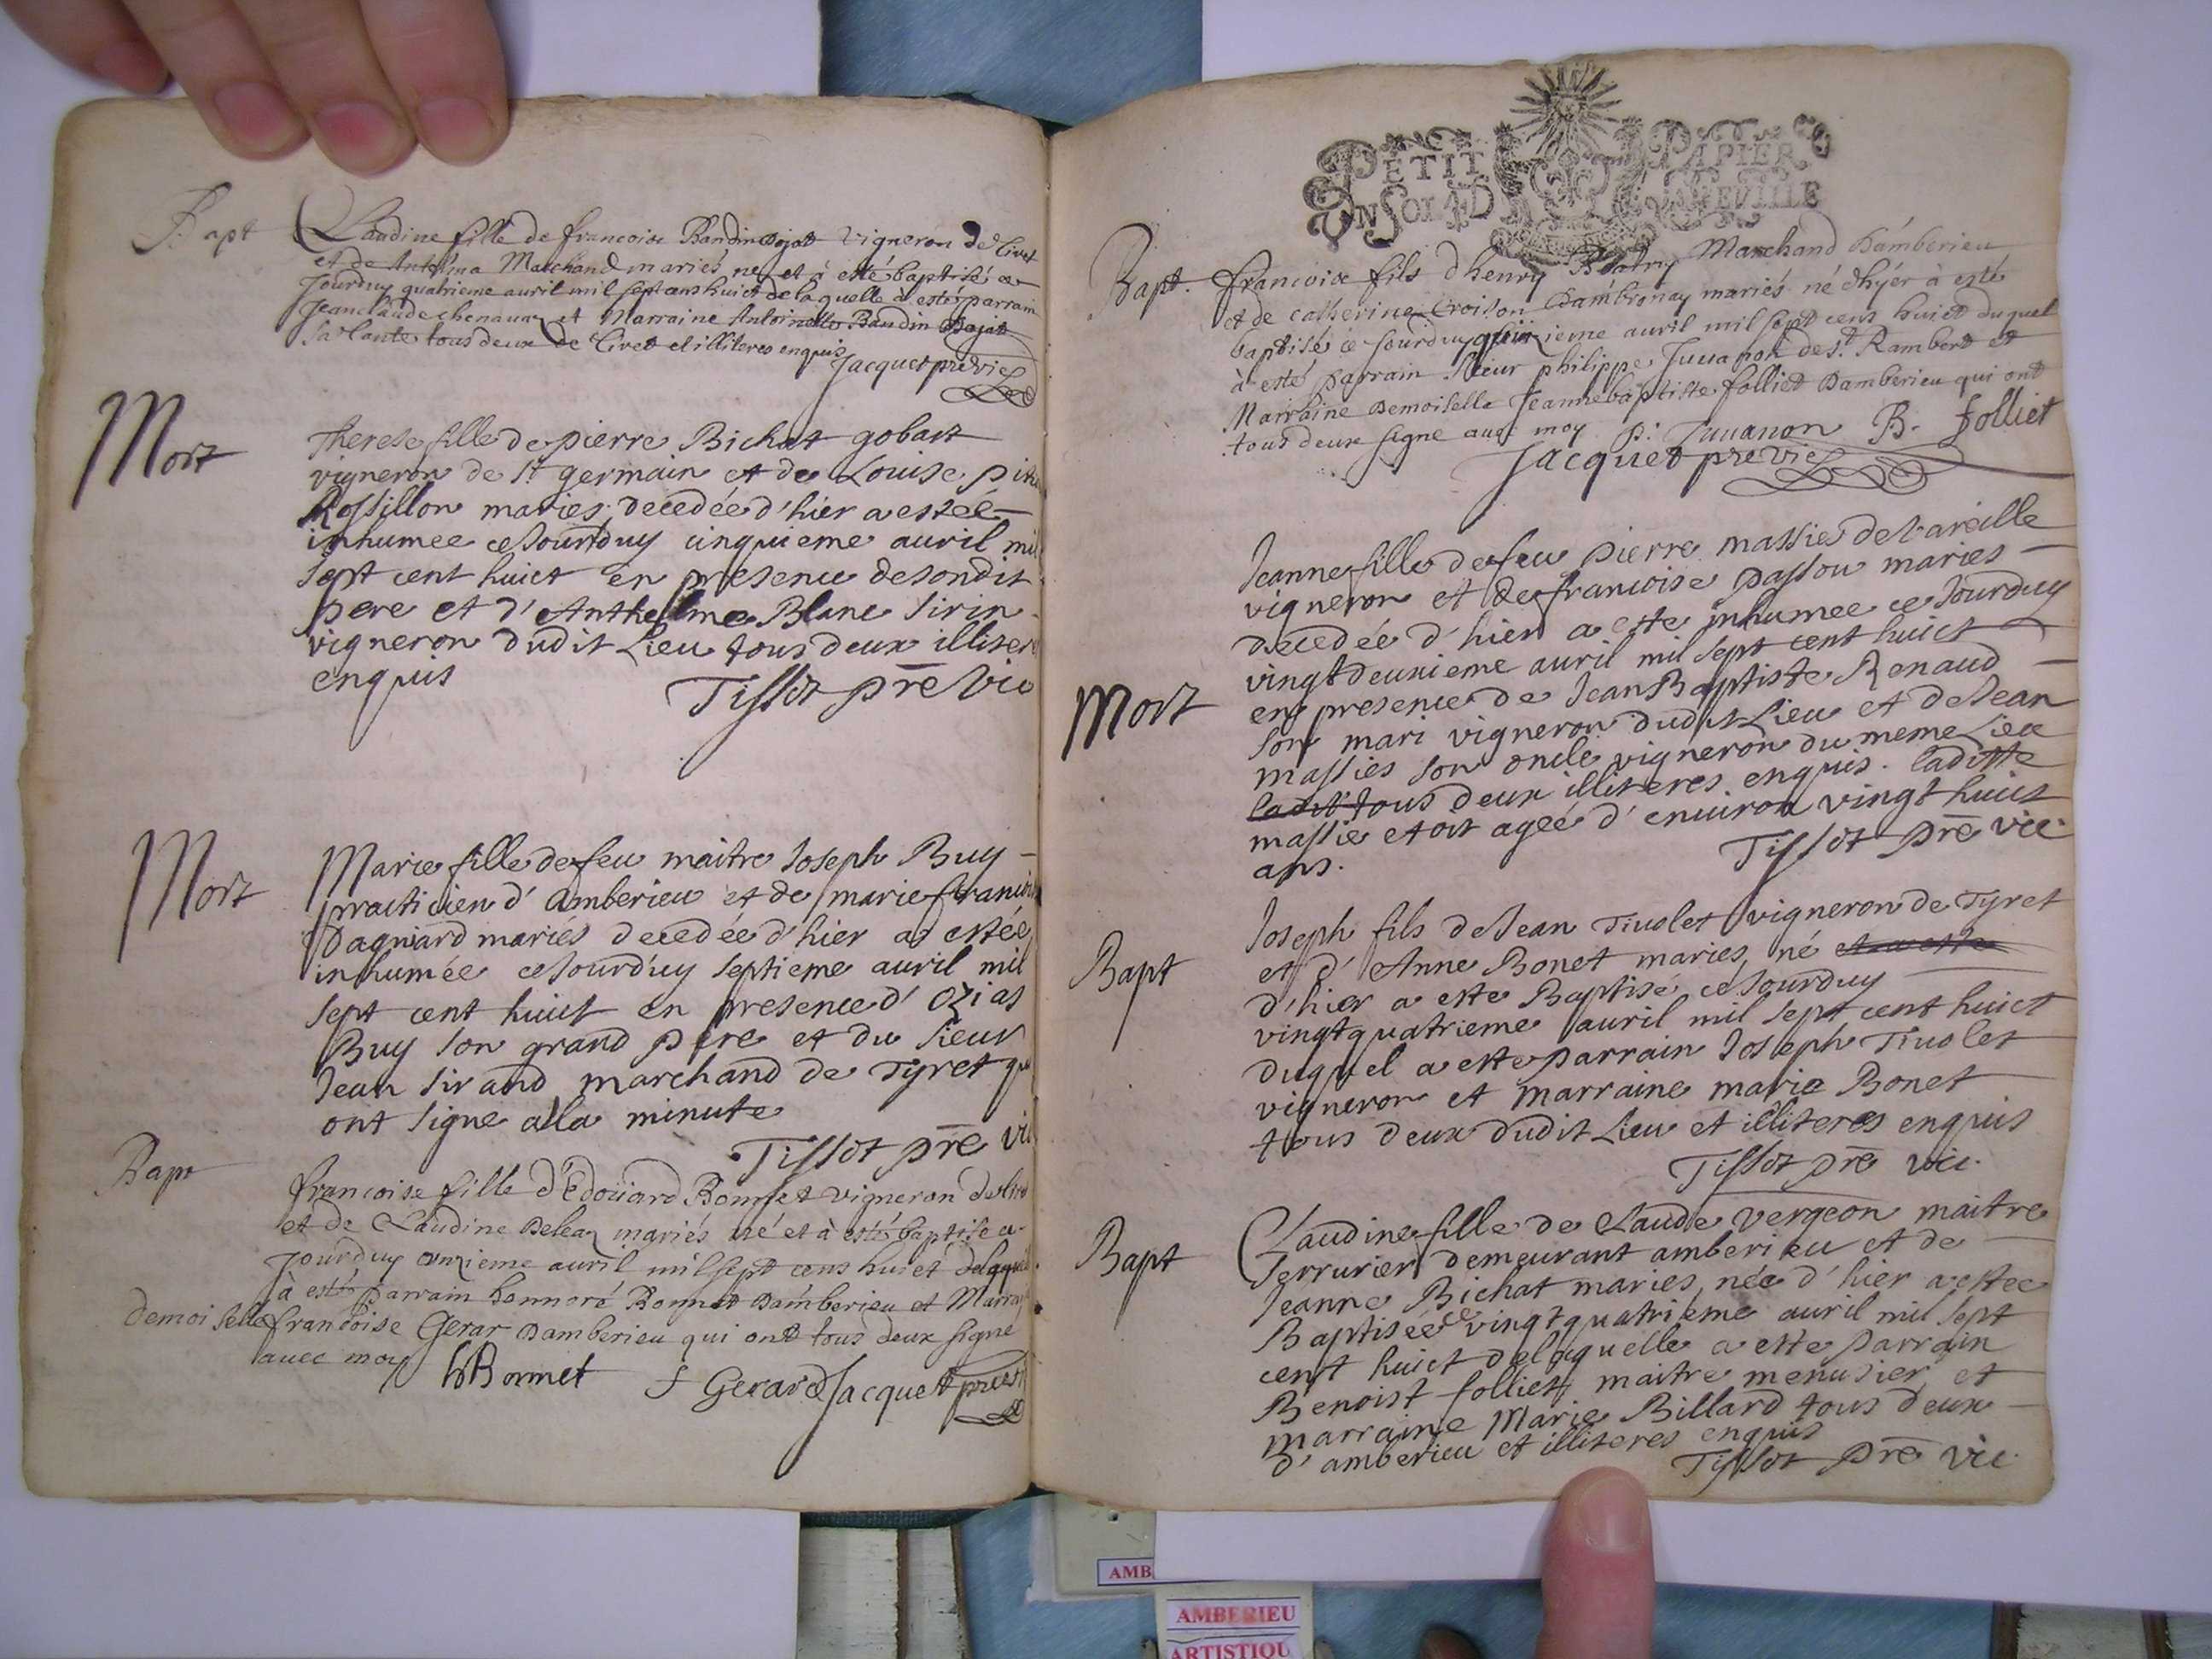 Bapt
Claudine fille de francoise Baudin Bojat vigneron de Tiret
et de Anthelma Marchand mariés né et à esté baptisé ce
Jourduy quatrieme auril mil sept cens huict de laquelle à esté parrain
Jeanclaude chenauaz et Marraine Antoinette Baudin Bojat
sa tante tous deux de Tiret et illiteres enquis
Jacquet pre vic
Mort
Therese fille de pierre Bichat gobart
vigneron de st germain et de Louise
Rossillon mariés decedée d'hier a estée
inhumee ce Jourduy cinquieme auril mil
sept cent huict en presence de sondit
pere et d'Anthelme Blanc sirin
vigneron dudit Lieu tous deux illiteres
enquis
Tissot pre vic
Mort
Marie fille de feu maitre Joseph Buy
practicien d'amberieu et de marie francoise
Dagniard mariés decedée d'hier a estée
inhumée ce Jourd'uy septieme auril mil
sept cent huict en presence d'ozias
Buy son grand pere et du sieur
Jean sirand marchand de Tyret qui
ont signe a la minute
Tissot pre vic
Bapt
francoise fille d'Edoüard Bonnet vigneron de Tiret
et de Claudine Beleaz mariés né et à esté baptise ce
jourduy onzieme auril mil sept cens huict delaquelle
à esté parrain honnoré Bonnet Damberieu et Marraine
demoiselle francoise Gerar Damberieu qui ont tous deux signé
auec moy
h Bonnet f Gerard Jacquet pre vic
PETIT PAPIER
UN SOL 4 D LA FEUILLE
Bapt.
francois fils d'henry Marchand Damberieu
et de catherine Croison Dambronay mariés né d'hyér à esté
baptisé ce Jourduy quinzieme auril mil sept cens huict duquel
à esté parrain sieur philippe Juuanon de st. Rambert et
Marraine Demoiselle Jeannebaptiste folliet Damberieu qui ont
tous deux signe auec moy p: Juuanon B. folliet
Jacquet pre vic
Mort
Jeanne fille de feu pierre massie de Vareille
vigneron et de francoise passou maries
decedée d'hier a este inhumee ce Jourduy
vingtdeuxieme auril mil sept cent huict
en presence de Jean Baptiste Renaud
son mari vigneron dudit Lieu et de Jean
massies son oncle vigneron du meme Lieu
ladit tous deux illiteres enquis. laditte
massie etoit agée d'enuiron vingt huict
ans.
Tissot pre vic.
Bapt
Joseph fils de Jean Tiuolet vigneron de Tyret
et d'Anne Bonet maries né et a este
d'hier a este Baptisé ce Jourduy
vingtquatrieme auril mil sept cent huict
duquel a este parrain Joseph Tiuolet
vigneron et marraine marie Bonet
tous deux dudit Lieu et illiteres enquis
Tissot pre vic.
Bapt
Claudine fille de Claude vergeon maitre
serrurier demeurant amberieu et de
Jeanne Bichat maries née d'hier a estee
Baptisée ce vingtquatrieme auril mil sept
cent huict delaquelle a este parrain
Benoist folliet maitre menusier et
marraine Marie Billard tous deux
d'amberieu et illiteres enquis
Tissot pre vic.
AMB
AMBERIEU
ARTISTIQU